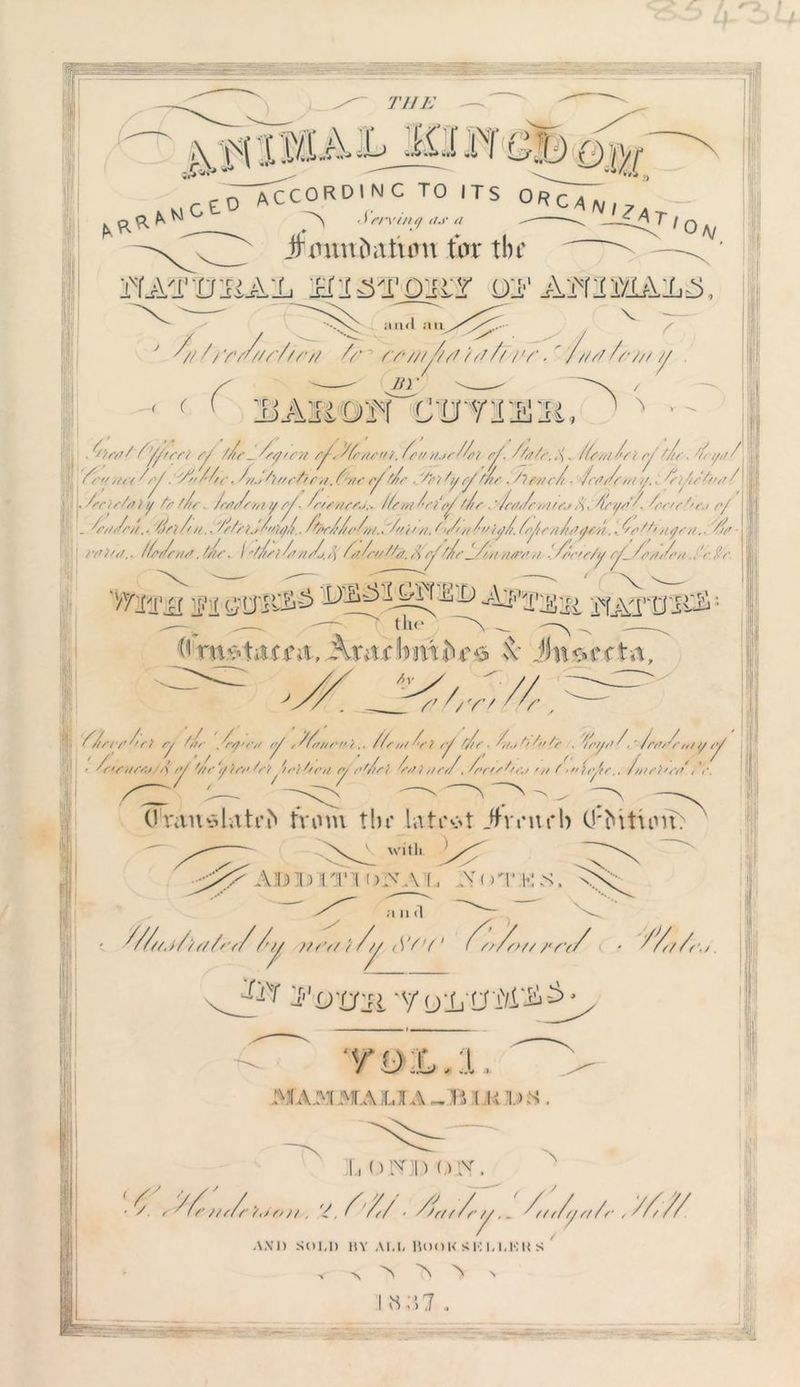 THE
ANIMAL KINGDOM,
ARRANGED ACCORDING TO ITS ORGANIZATION,
Serving as a
Foundation for the
NATURAL HISTORY OF ANIMALS,
and an
Introduction to comparative Anatomy.
BY
BARON CUVIER,
Great Officer of the Legion of Honour, Counsellor of State, & Member of the Royal
Council of Public Instruction, One of the Forty of the French Academy, Perpetual
Secretary to the Academy of Sciences, Member of the Academies & Royal Societies of
London, Berlin, Petersburgh, Stockholm, Turin, Edinburgh, Copenhagen, Gottingen, Ba-
varia, Modena, the Netherlands, & Calcutta, & of the Linnæan Society of London &c. &c.
WITH FIGURES DESIGNED AFTER NATURE:
the
Crustacea, Arachnides & Insecta,
by
M. Latreille,
Chevalier of the Legion of Honour, Member of the Institute Royal Academy of
Sciences, & of the greater portion of other learned Societies in Europe, America &c.
Translated from the latest French Edition:
with
ADDITIONAL NOTES,
and
Illustrated by nearly 500 Coloured Plates.
IN FOUR VOLUMES,
VOL. 1.
MAMMALIA _ BIRDS.
LONDON.
G. Henderson, 2, Old Bailey, Ludgate Hill
AND SOLD BY ALL BOOKSELLERS
1837.